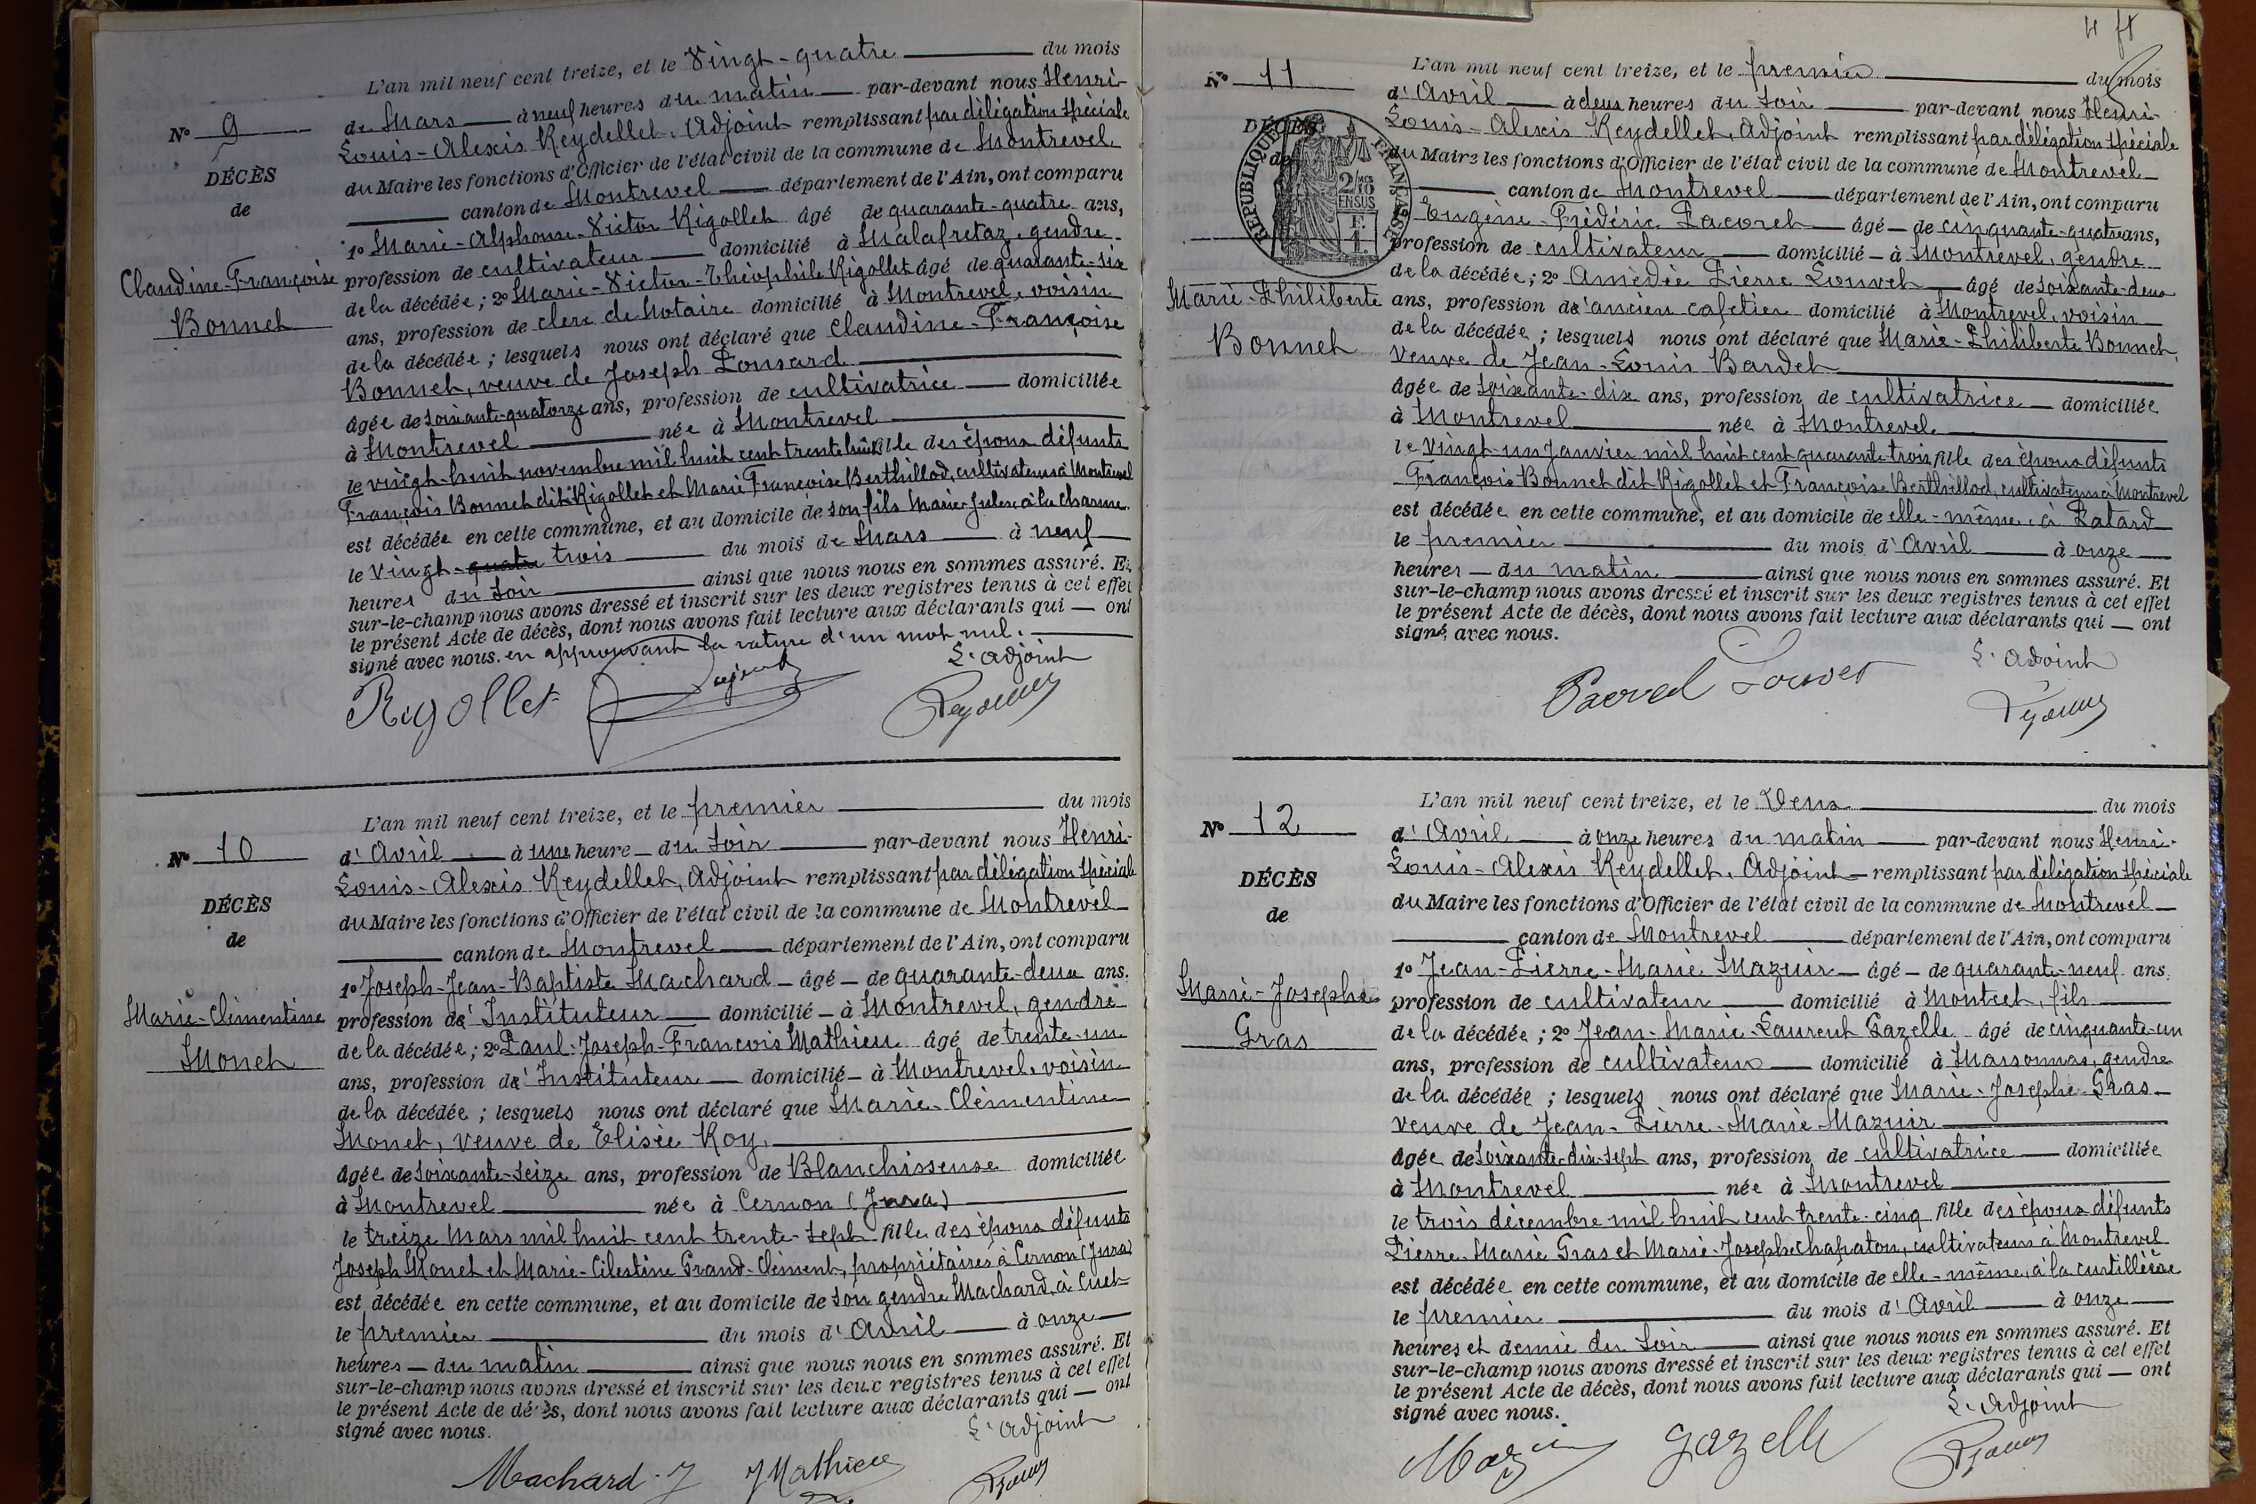 L'an mil neuf cent treize, et le Vingt-quatre du mois
N° 9
de Mars à neuf heures du matin par-devant nous Henri-
Louis-Alexis Reydellet, Adjoint remplissant par délégation spéciale
du Maire les fonctions d'Officier de l'état civil de la commune de Montrevel
DÉCÈS
de
canton de Montrevel département de l'Ain, ont comparu
1° Marie-Alphonse-Victor Rigollet âgé de quarante-quatre ans,
profession de cultivateur domicilié à Malafretaz, gendre
Claudine-Françoise
Bonnet
de la décédée; 2° Marie-Victor-Théophile Rigollet âgé de quarante-six
ans, profession de clerc de Notaire domicilié à Montrevel, voisin
de la décédée; lesquels nous ont déclaré que Claudine-Françoise
Bonnet, veuve de Joseph Ponsard
âgée de soixante-quatorze ans, profession de cultivatrice domiciliée
à Montrevel née à Montrevel
le vingt-huit novembre mil huit cent trente huit fille des époux défunts
François Bonnet dit Rigollet et Marie Françoise Berthillod, cultivateurs à Montrevel
est décédée en cette commune, et au domicile de son fils Marie-Jules, à la Charme
le Vingt-quatre trois du mois de Mars à neuf
heures du soir ainsi que nous nous en sommes assuré. Et
sur-le-champ nous avons dressé et inscrit sur les deux registres tenus à cet effet
le présent Acte de décès, dont nous avons fait lecture aux déclarants qui ont
signé avec nous. en approuvant la rature d'un mot nul.
L'adjoint
Rigollet
L'an mil neuf cent treize, et le premier du mois
N° 10
d'Avril à une heure du soir par-devant nous Henri-
Louis-Alexis Reydellet, Adjoint remplissant par délégation spéciale
du Maire les fonctions d'Officier de l'état civil de la commune de Montrevel
DÉCÈS
de
canton de Montrevel département de l'Ain, ont comparu
1° Joseph-Jean-Baptiste Machard âgé de quarante-deux ans,
Marie-Clémentine
Monet
profession d'Instituteur domicilié à Montrevel, gendre
de la décédée; 2° Paul-Joseph-François Mathieu âgé de trente-un
ans, profession d'Instituteur domicilié à Montrevel, voisin
de la décédée; lesquels nous ont déclaré que Marie-Clémentine
Monet, veuve de Elisée Roy,
âgée de soixante-seize ans, profession de Blanchisseuse domiciliée
à Montrevel née à Cernon (Jura)
le treize Mars mil huit cent trente-sept fille des époux défunts
Joseph Monet et Marie-Célestine Grand-Clément, propriétaires à Cernon (Jura)
est décédée en cette commune, et au domicile de son gendre Machard, à Cuet
le premier du mois d'Avril à onze
heures du matin ainsi que nous nous en sommes assuré. Et
sur-le-champ nous avons dressé et inscrit sur les deux registres tenus à cet effet
le présent Acte de décès, dont nous avons fait lecture aux déclarants qui ont
signé avec nous.
L'adjoint
Machard J JMathieu
4
L'an mil neuf cent treize, et le premier du mois
N° 11
d'Avril à deux heures du soir par-devant nous Henri-
Louis-Alexis Reydellet, Adjoint remplissant par délégation spéciale
DÉCÈS
de
RÉPUBLIQUE FRANÇAISE
2/10 EN SUS
du Maire les fonctions d'Officier de l'état civil de la commune de Montrevel
canton de Montrevel département de l'Ain, ont comparu
Eugène-Frédéric Pacoret âgé de cinquante-quatre ans,
profession de cultivateur domicilié à Montrevel, gendre
de la décédée; 2° Amédée Pierre Louvet âgé de soixante-deux
Marie-Philiberte
Bonnet
ans, profession d'ancien cafetier domicilié à Montrevel, voisin
de la décédée; lesquels nous ont déclaré que Marie-Philiberte Bonnet,
Veuve de Jean-Louis Bardet
âgée de soixante-dix ans, profession de cultivatrice domiciliée
à Montrevel née à Montrevel
le vingt-un Janvier mil huit cent quarante-trois fille des époux défunts
François Bonnet dit Rigollet et Françoise Berthillod, cultivateurs à Montrevel
est décédée en cette commune, et au domicile de elle-même, à Ratard
le premier du mois d'Avril à onze
heures du matin ainsi que nous nous en sommes assuré. Et
sur-le-champ nous avons dressé et inscrit sur les deux registres tenus à cet effet
le présent Acte de décès, dont nous avons fait lecture aux déclarants qui ont
signé avec nous.
L'adjoint
Louvet
L'an mil neuf cent treize, et le Deux du mois
N° 12
d'Avril à onze heures du matin par-devant nous Henri-
Louis-Alexis Reydellet, Adjoint remplissant par délégation spéciale
DÉCÈS
de
du Maire les fonctions d'Officier de l'état civil de la commune de Montrevel
canton de Montrevel département de l'Ain, ont comparu
1° Jean-Pierre-Marie Mazuir âgé de quarante-neuf ans,
Marie-Josephe
Gras
profession de cultivateur domicilié à Montcet, fils
de la décédée; 2° Jean-Marie-Laurent Gazelle âgé de cinquante-un
ans, profession de cultivateur domicilié à Marsonnas, gendre
de la décédée; lesquels nous ont déclaré que Marie-Josephe Gras
veuve de Jean-Pierre-Marie Mazuir
âgée de soixante-dix-sept ans, profession de cultivatrice domiciliée
à Montrevel née à Montrevel
le trois décembre mil huit cent trente-cinq fille des époux défunts
Pierre-Marie Gras et Marie-Josephe Chapaton, cultivateurs à Montrevel
est décédée en cette commune, et au domicile de elle-même, à la curtillière
le premier du mois d'Avril à onze
heures et demie du soir ainsi que nous nous en sommes assuré. Et
sur-le-champ nous avons dressé et inscrit sur les deux registres tenus à cet effet
le présent Acte de décès, dont nous avons fait lecture aux déclarants qui ont
signé avec nous.
L'adjoint
Gazelle